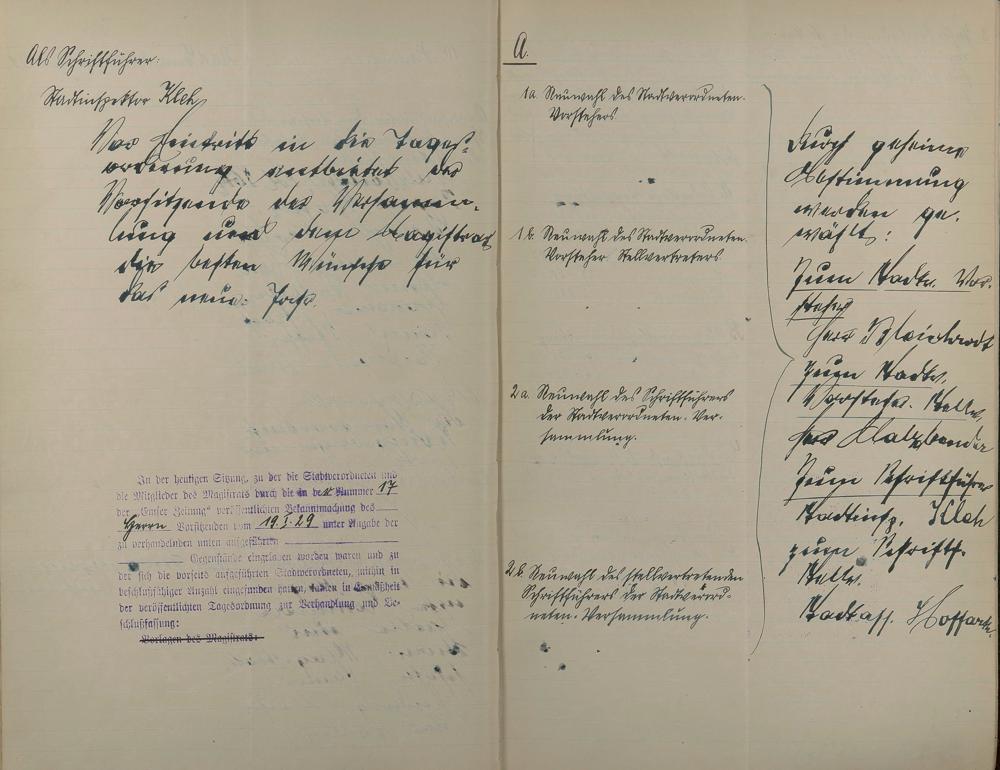 Als Schriftführer:
Stadtinspektor Klch
Vor Eintritt in die Tages-
ordnung entbietet der
Vorsitzende der Versamm-
lung und dem Magistrat
die besten Wünsche für
das neue Jahr.
In der heutigen Sitzung, zu der die Stadtverordneten und
die Mitglieder des Magistrats durch die in der Nummer 17
der „Emser Zeitung" veröffentlichten Bekanntmachung des
Herrn Vorsitzenden vom 19.I.29 unter Angabe der
zu verhandelnden unten aufgeführten
Gegenstände eingeladen worden waren und zu
der sich die vorseits aufgeführten Stadtverordneten, mithin in
beschlußfähiger Anzahl eingefunden hatten, kamen in Gemäßheit
der veröffentlichten Tagesordnung zur Verhandlung und Be-
schlußfassung:
Vorlagen des Magistrats:
A.
1a Neuwahl des Stadtverordneten-
Vorstehers
1b. Neuwahl des Stadtverordneten-
Vorsteher Stellvertreters
2a. Neuwahl des Schriftführers
der Stadtverordneten-Ver-
sammlung.
2b. Neuwahl des stellvertretenden
Schriftführers der Stadtverord-
neten-Versammlung.
Durch geheime
Abstimmung
werden ge-
wählt:
Zum Stadtv. Vor-
steher
Herr
Zum Stadtv.
Vorsteher-Stellv.
Herr
Zum Schriftführer
Stadtinsp. Klch
zum Schriftf.
Stellv.
Stadtass.